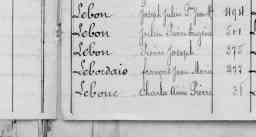 Lebon Joseph Julien 494
Lebon Julien 501
Lebon Pierre Joseph 575
Lebordais François Jean Marie 277
Lebouc Charles Aimé Pierre 31